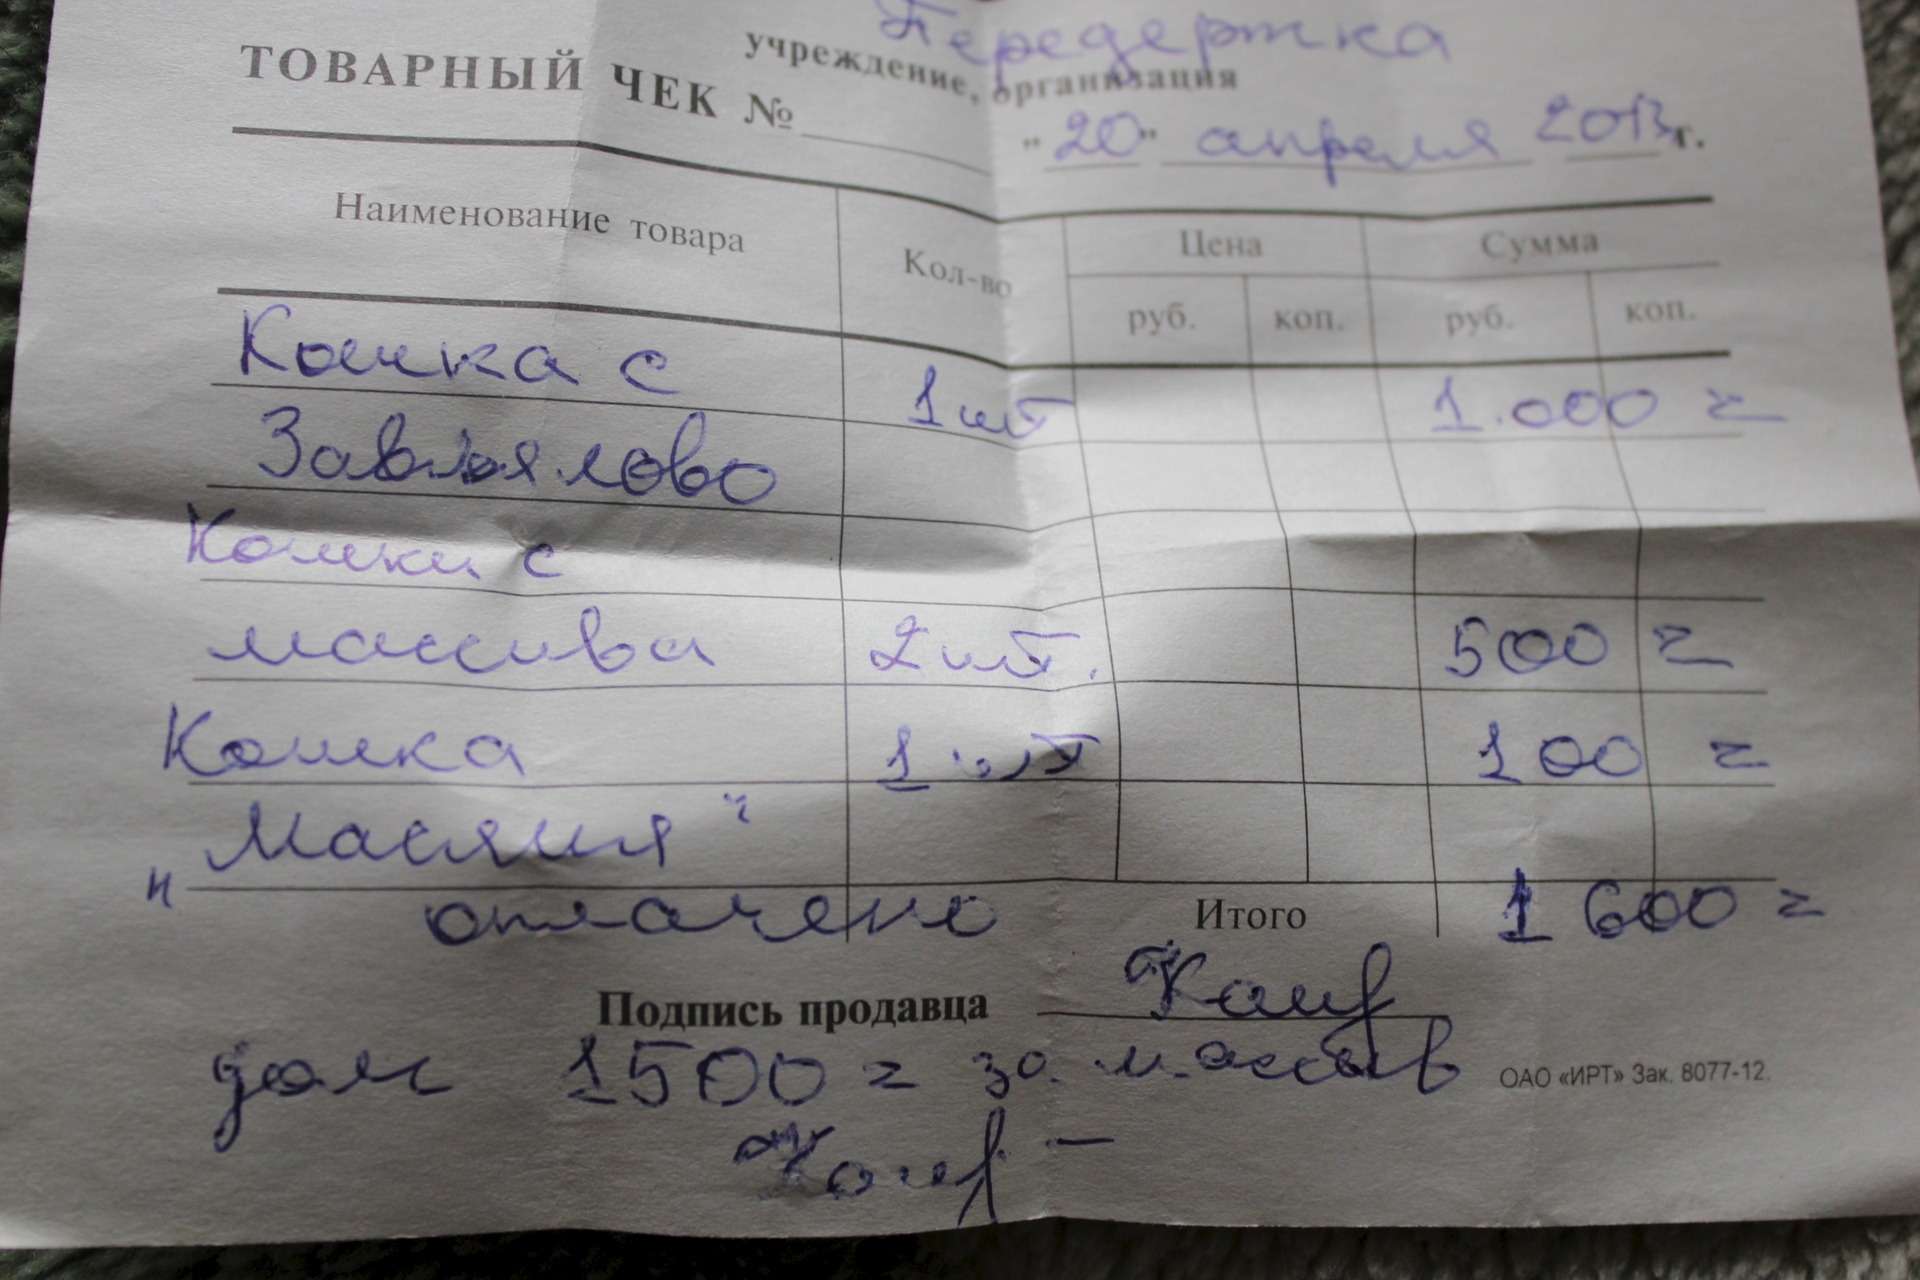 Передержка
учреждение, организация
ТОВАРНЫЙ ЧЕК № "20" апреля 2013 г.
Наименование товара Кол-во Цена Сумма
руб. коп. руб. коп.
Кошка с 1 шт 1.000 =
Завьялово
Кошки с
массива 2 шт. 500 =
Кошка 1 шт 100 =
"Масяня"
оплачено Итого 1600 =
Подпись продавца
долг 1500 = за массив
ОАО «ИРТ» Зак. 8077-12.